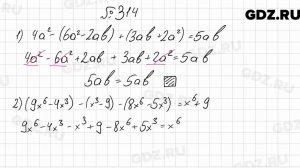 № 314
GDZ.RU
1) 4a² - (6a² - 2ab) + (3ab + 2a²) = 5ab
4a² - 6a² + 2ab + 3ab + 2a² = 5ab
5ab = 5ab
2) (9x⁶ - 4x³) - (x³ - 9) - (8x⁶ - 5x³) = x⁶ + 9
9x⁶ - 4x³ - x³ + 9 - 8x⁶ + 5x³ = x⁶
GDZ.RU